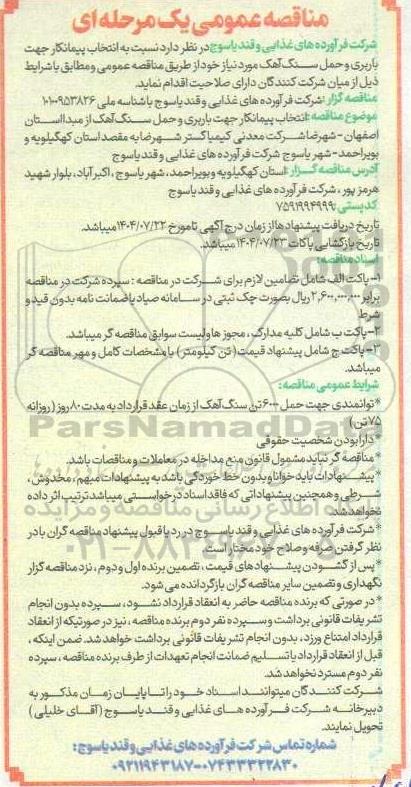 مناقصه عمومی یک مرحله ای
شرکت فرآورده های غذایی و قند یاسوج در نظر دارد نسبت به انتخاب پیمانکار جهت
باربری و حمل سنگ آهک مورد نیاز خود از طریق مناقصه عمومی و مطابق با شرایط
ذیل از میان شرکت کنندگان دارای صلاحیت اقدام نماید.
مناقصه گزار: شرکت فرآورده های غذایی و قند یاسوج با شناسه ملی ۱۰۱۰۰۹۵۳۸۲۶
موضوع مناقصه: انتخاب پیمانکار جهت باربری و حمل سنگ آهک از مبدا استان
اصفهان - شهرضا شرکت معدنی کیمیا گستر شهرضا به مقصد استان کهگیلویه و
بویراحمد - شهر یاسوج شرکت فرآورده های غذایی و قند یاسوج
آدرس مناقصه گزار: استان کهگیلویه و بویراحمد، شهر یاسوج، اکبرآباد، بلوار شهید
هرمز پور، شرکت فرآورده های غذایی و قند یاسوج
کدپستی: ۷۵۹۱۹۹۴۹۹۹
تاریخ دریافت پیشنهادها از زمان درج آگهی تا مورخ ۱۴۰۴/۰۷/۲۲ میباشد.
تاریخ بازگشایی پاکات ۱۴۰۴/۰۷/۲۳ میباشد.
اسناد مناقصه:
۱- پاکت الف شامل تضامین لازم برای شرکت در مناقصه: سپرده شرکت در مناقصه
برابر ۲,۶۰۰,۰۰۰,۰۰۰ ریال بصورت چک ثبتی در سامانه صیاد یا ضمانت نامه بدون قید و
شرط
۲- پاکت ب شامل کلیه مدارک، مجوزها و لیست سوابق مناقصه گر میباشد.
۳- پاکت ج شامل پیشنهاد قیمت (تن کیلومتر) با مشخصات کامل و مهر مناقصه گر
میباشد.
شرایط عمومی مناقصه:
* توانمندی جهت حمل ۶۰۰۰ تن سنگ آهک از زمان عقد قرارداد به مدت ۸۰ روز (روزانه
۷۵ تن)
* دارا بودن شخصیت حقوقی
* مناقصه گر نباید مشمول قانون منع مداخله در معاملات و مناقصات باشد.
* پیشنهادات باید خوانا و بدون خط خوردگی باشد به پیشنهادات مبهم، مخدوش،
شرطی و همچنین پیشنهاداتی که فاقد اسناد درخواستی میباشد ترتیب اثر داده
نخواهد شد.
* شرکت فرآورده های غذایی و قند یاسوج در رد یا قبول پیشنهاد مناقصه گران با در
نظر گرفتن صرفه و صلاح خود مختار است
* پس از گشودن پیشنهادهای قیمت، تضمین برنده اول و دوم، نزد مناقصه گزار
نگهداری و تضمین سایر مناقصه گران بازگردانده می شود.
* در صورتی که برنده مناقصه حاضر به انعقاد قرارداد نشود، سپرده بدون انجام
تشریفات قانونی برداشت و سپرده نفر دوم برنده مناقصه، نیز در صورتیکه از انعقاد
قرارداد امتناع ورزد، بدون انجام تشریفات قانونی برداشت خواهد شد. ضمن اینکه،
قبل از انعقاد قرارداد یا تسلیم ضمانت انجام تعهدات از طرف برنده مناقصه، سپرده
نفر دوم مسترد نخواهد شد.
شرکت کنندگان میتوانند اسناد خود را تا پایان زمان مذکور به
دبیرخانه شرکت فرآورده های غذایی و قند یاسوج (آقای خلیلی)
تحویل نمایند.
شماره تماس شرکت فرآورده های غذایی و قند یاسوج:
۰۹۲۱۱۹۴۳۱۸۷-۰۷۴۳۳۳۲۲۸۳۰
ParsNamadData
۰۲۱-۸۸۳۴۹۶۷۰